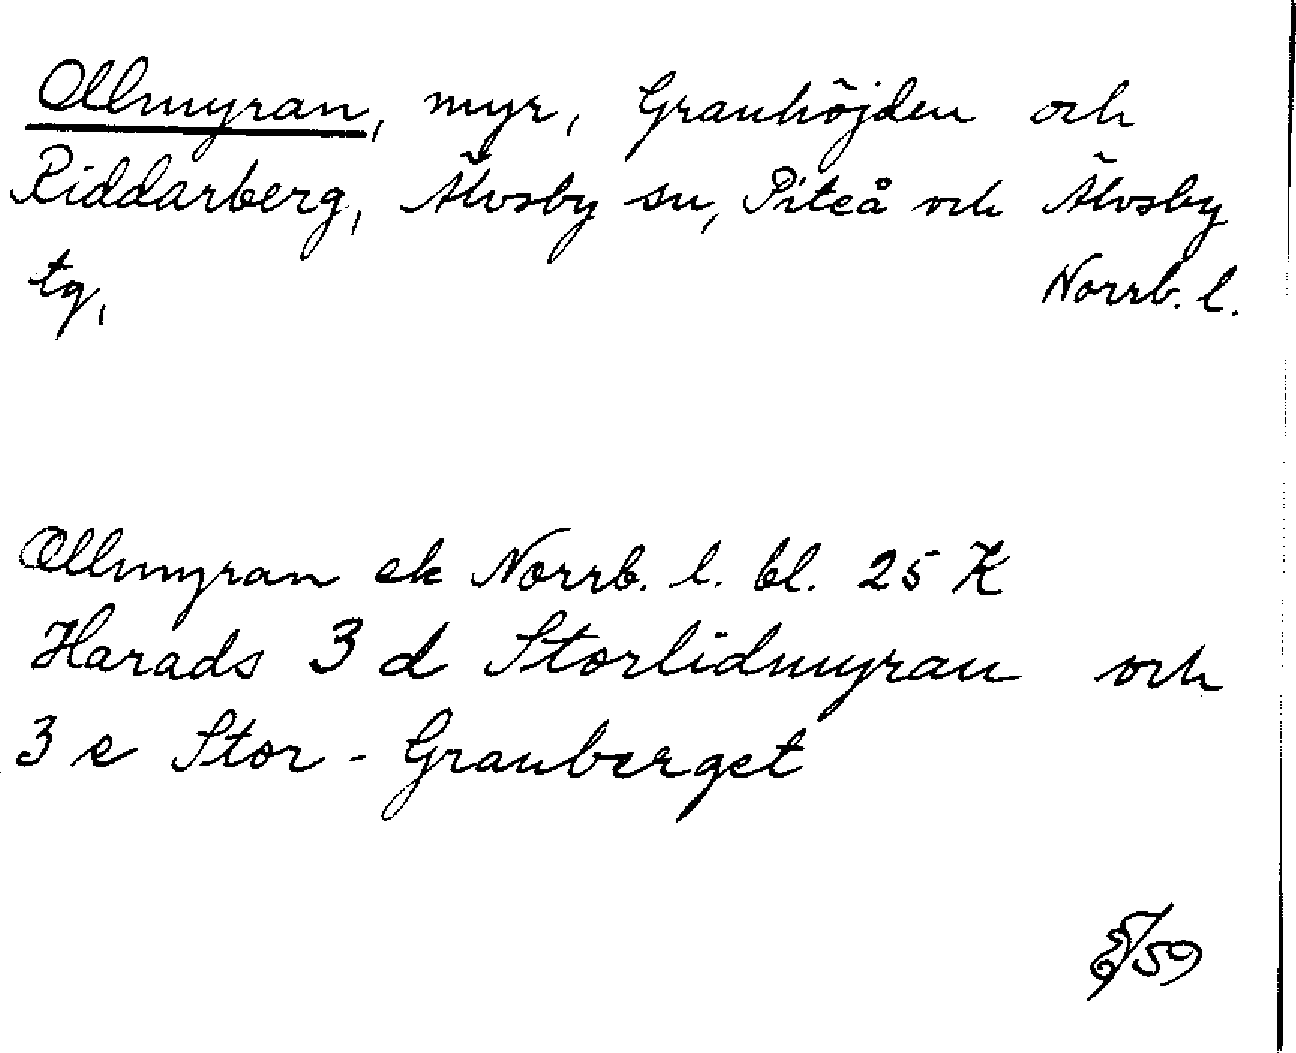 Ollmyran, myr, Granhöjden och
Riddarberg, Älvsby sn, Piteå och Älvsby
tg, Norrb. l.
Ollmyran ek Norrb. l. bl. 25 K
Harads 3 d Storlidmyran och
3 e Stor-Granberget
/59